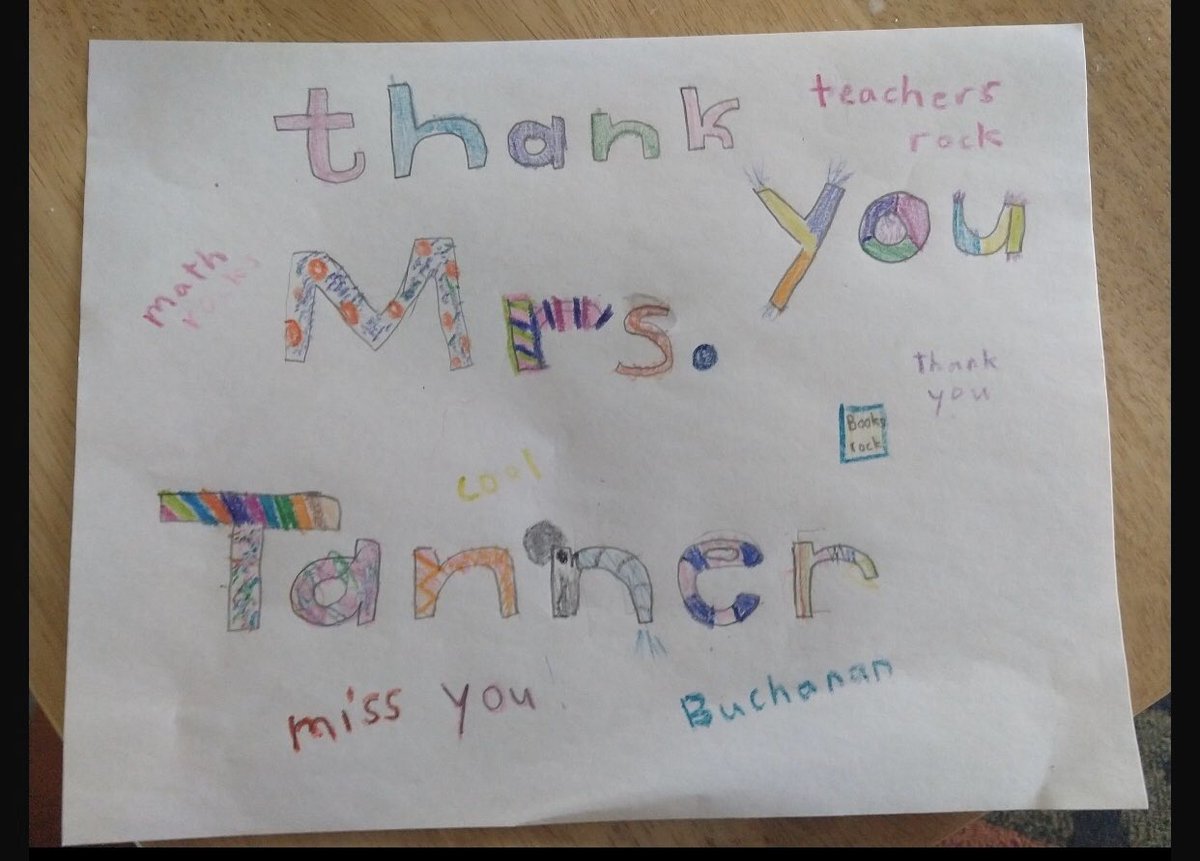 thank
teachers
rock
you
math
rocks
Mrs.
thank
you
Books
rock
cool
Tanner
miss you!
Buchanan